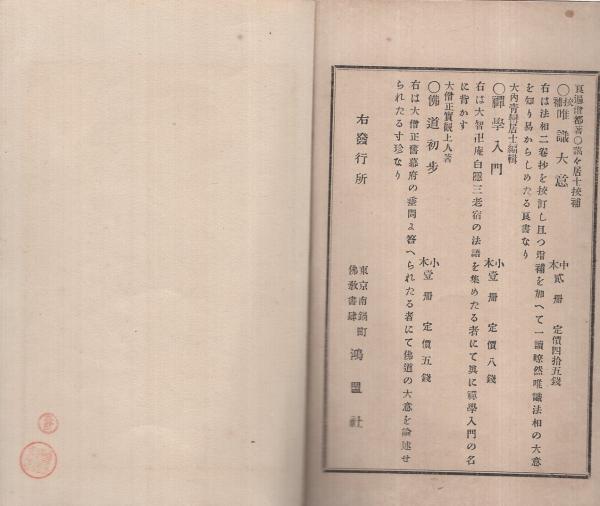 良遍僧都著〇藹々居士挍補
〇挍補唯識大意 中本貳册 定價四拾五錢
右は法相二卷抄を挍訂し且つ增補を加へて一讀瞭然唯識法相の大意
を知り易からしめたる良書なり
大內靑巒居士編輯
〇禪學入門 小本壹册 定價八錢
右は大智卍庵白隱三老宿の法語を集めたる者にて眞に禪學入門の名
に背かす
大僧正實觀上人著
〇佛道初步 小本壹册 定價五錢
右は大僧正舊幕府の垂問よ答へられたる者にて佛道の大意を論述せ
られたる寸珍なり
右發行所
東京南鍋町
佛敎書肆
鴻盟社